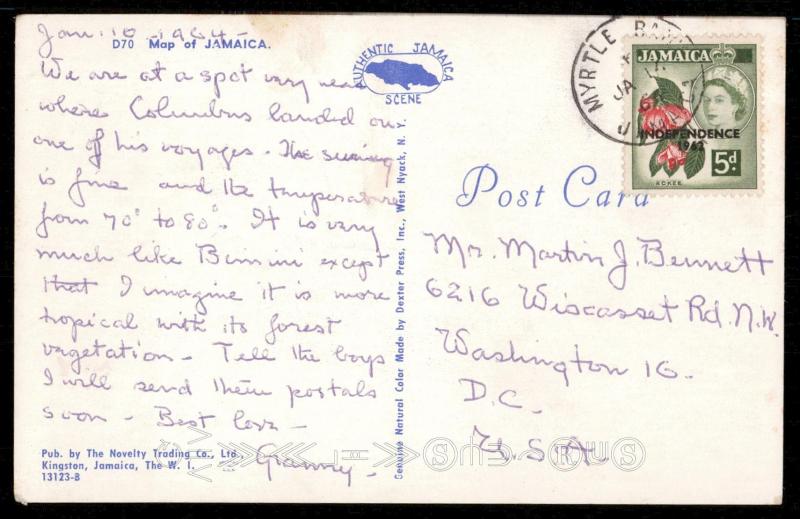 Jan. 10 - 1964 -
D70 Map of JAMAICA.
We are at a spot very near
where Columbus landed on
one of his voyages - The swimming
is fine and the temperature
from 70° to 80°. It is very
much like Bimini except
that I imagine it is more
tropical with its forest
vegetation - Tell the boys
I will send them postals
soon - Best love -
Granny -
Pub. by The Novelty Trading Co., Ltd.,
Kingston, Jamaica, The W. I.
13123-B
AUTHENTIC JAMAICA
SCENE
Genuine Natural Color Made by Dexter Press, Inc., West Nyack, N. Y.
MYRTLE
JA
JAMAICA
INDEPENDENCE
1962
5d
ACKEE
Post Card
Mr. Martin J. Bennett
6216 Wiscasset Rd. N.W.
Washington 16 -
D.C.
U.S.A.